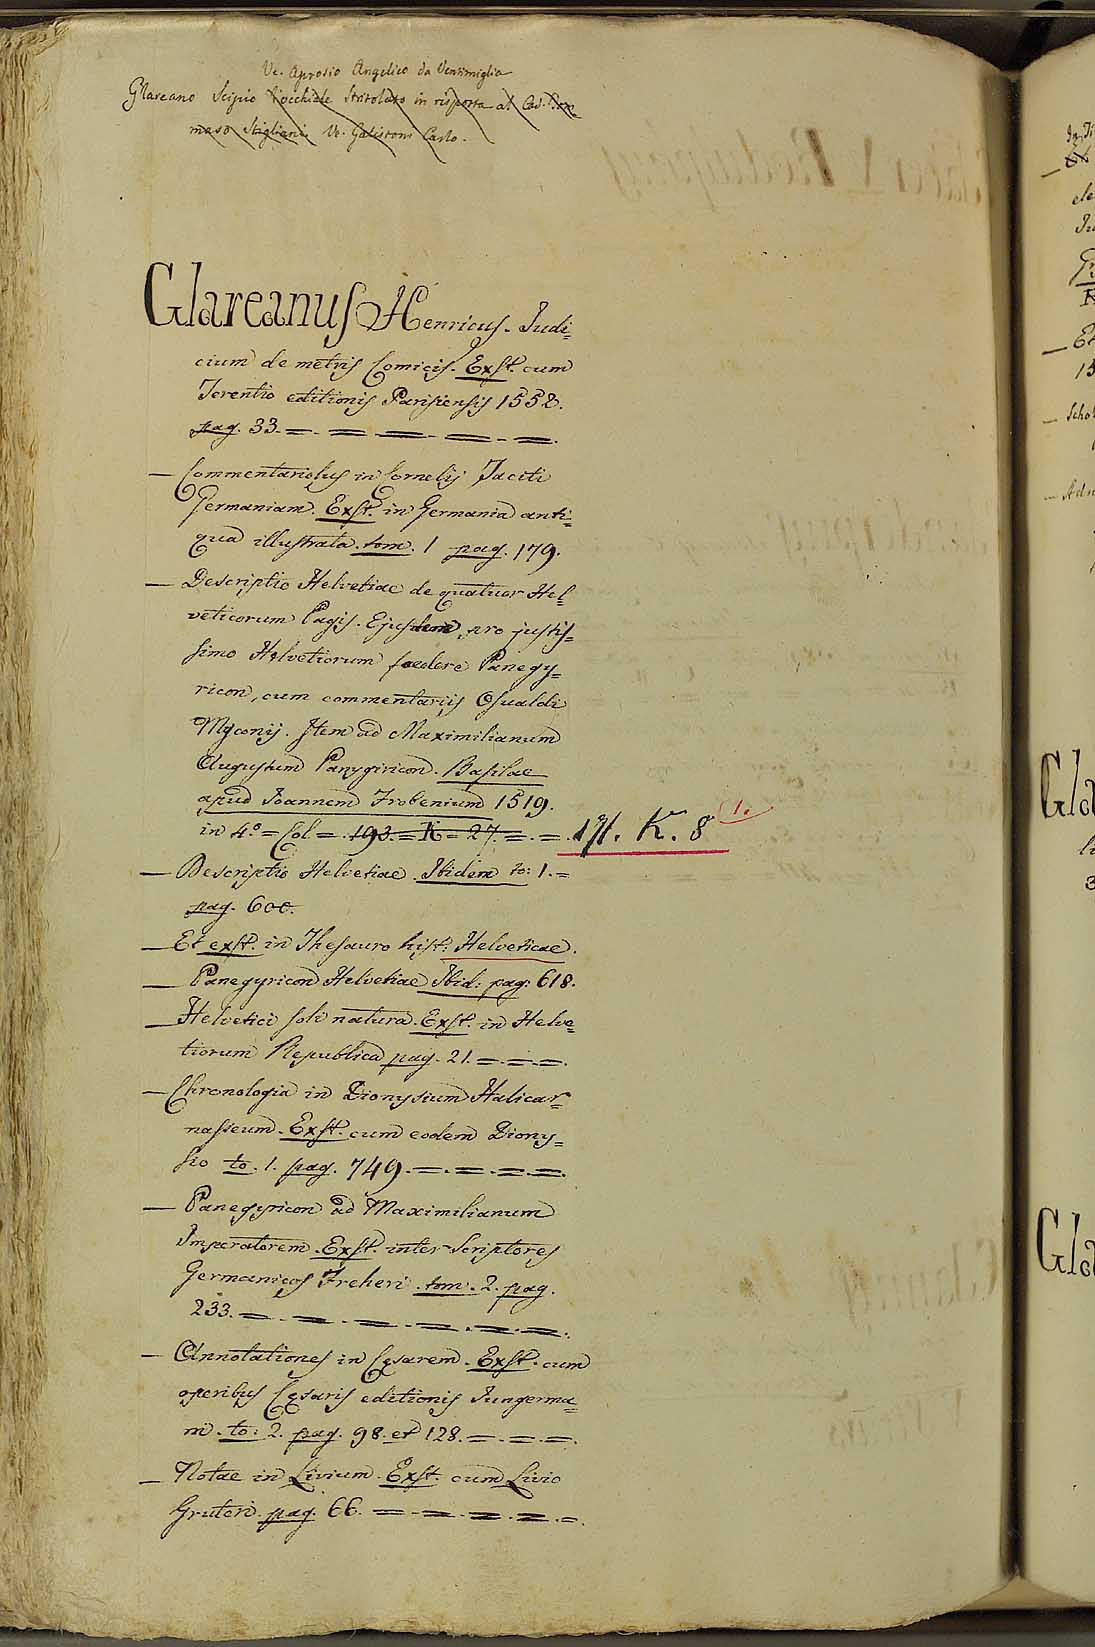 Ve. Aprosio Angelico da Ventimiglia
Glareano Scipio l'occhiale Stritolato in risposta al Cav. Tom-
maso Stigliani Ve. Galistoni Carlo.
Glareanus Henricus. Judi=
cium de metris Comicis. Exst. cum
Terentio editionis Parisiensis 1552.
pag. 33. = . = = = = .
— Commentariolus in Cornelij Taciti
Germaniam. Exst. in Germania anti=
qua illustrata. tom. 1 pag. 179.
— Descriptio Helvetiae de quatuor Hel=
veticorum Pagis. Ejusdem, pro justis=
simo Helvetiorum foedere Panegy=
ricon, cum commentariis Osualdi
Myconij. Item ad Maximilianum
Augustum Panygiricon. Basilae
apud Joannem Frobenium 1519.
in 4.º = Col = . 193. = K = 27. = . = . 171. K. 8 (1.
— Descriptio Helvetiae. Ibidem to: 1. =
pag. 600.
— Et exst. in Thesauro hist: Helveticae.
— Panegyricon Helvetiae Ibid: pag: 618.
— Helvetici soli natura. Exst. in Helve=
tiorum Republica pag. 21. = . = . = .
— Chronologia in Dionysium Halicar=
nasseum. Exst. cum eodem Diony=
sio to. 1. pag. 749. = . = . = . = .
— Panegyricon ad Maximilianum
Imperatorem. Exst. inter Scriptores
Germanicos Freheri. tom. 2. pag.
233. = . = . = . = . = . = .
— Annotationes in Cęsarem. Exst. cum
operibus Cęsaris editionis Jungerma=
ni. to: 2. pag. 98. et 128. = . = . = .
— Notae in Livium. Exst. cum Livio
Gruteri. pag. 66. = . = . = . = . = .
Gla
Gla